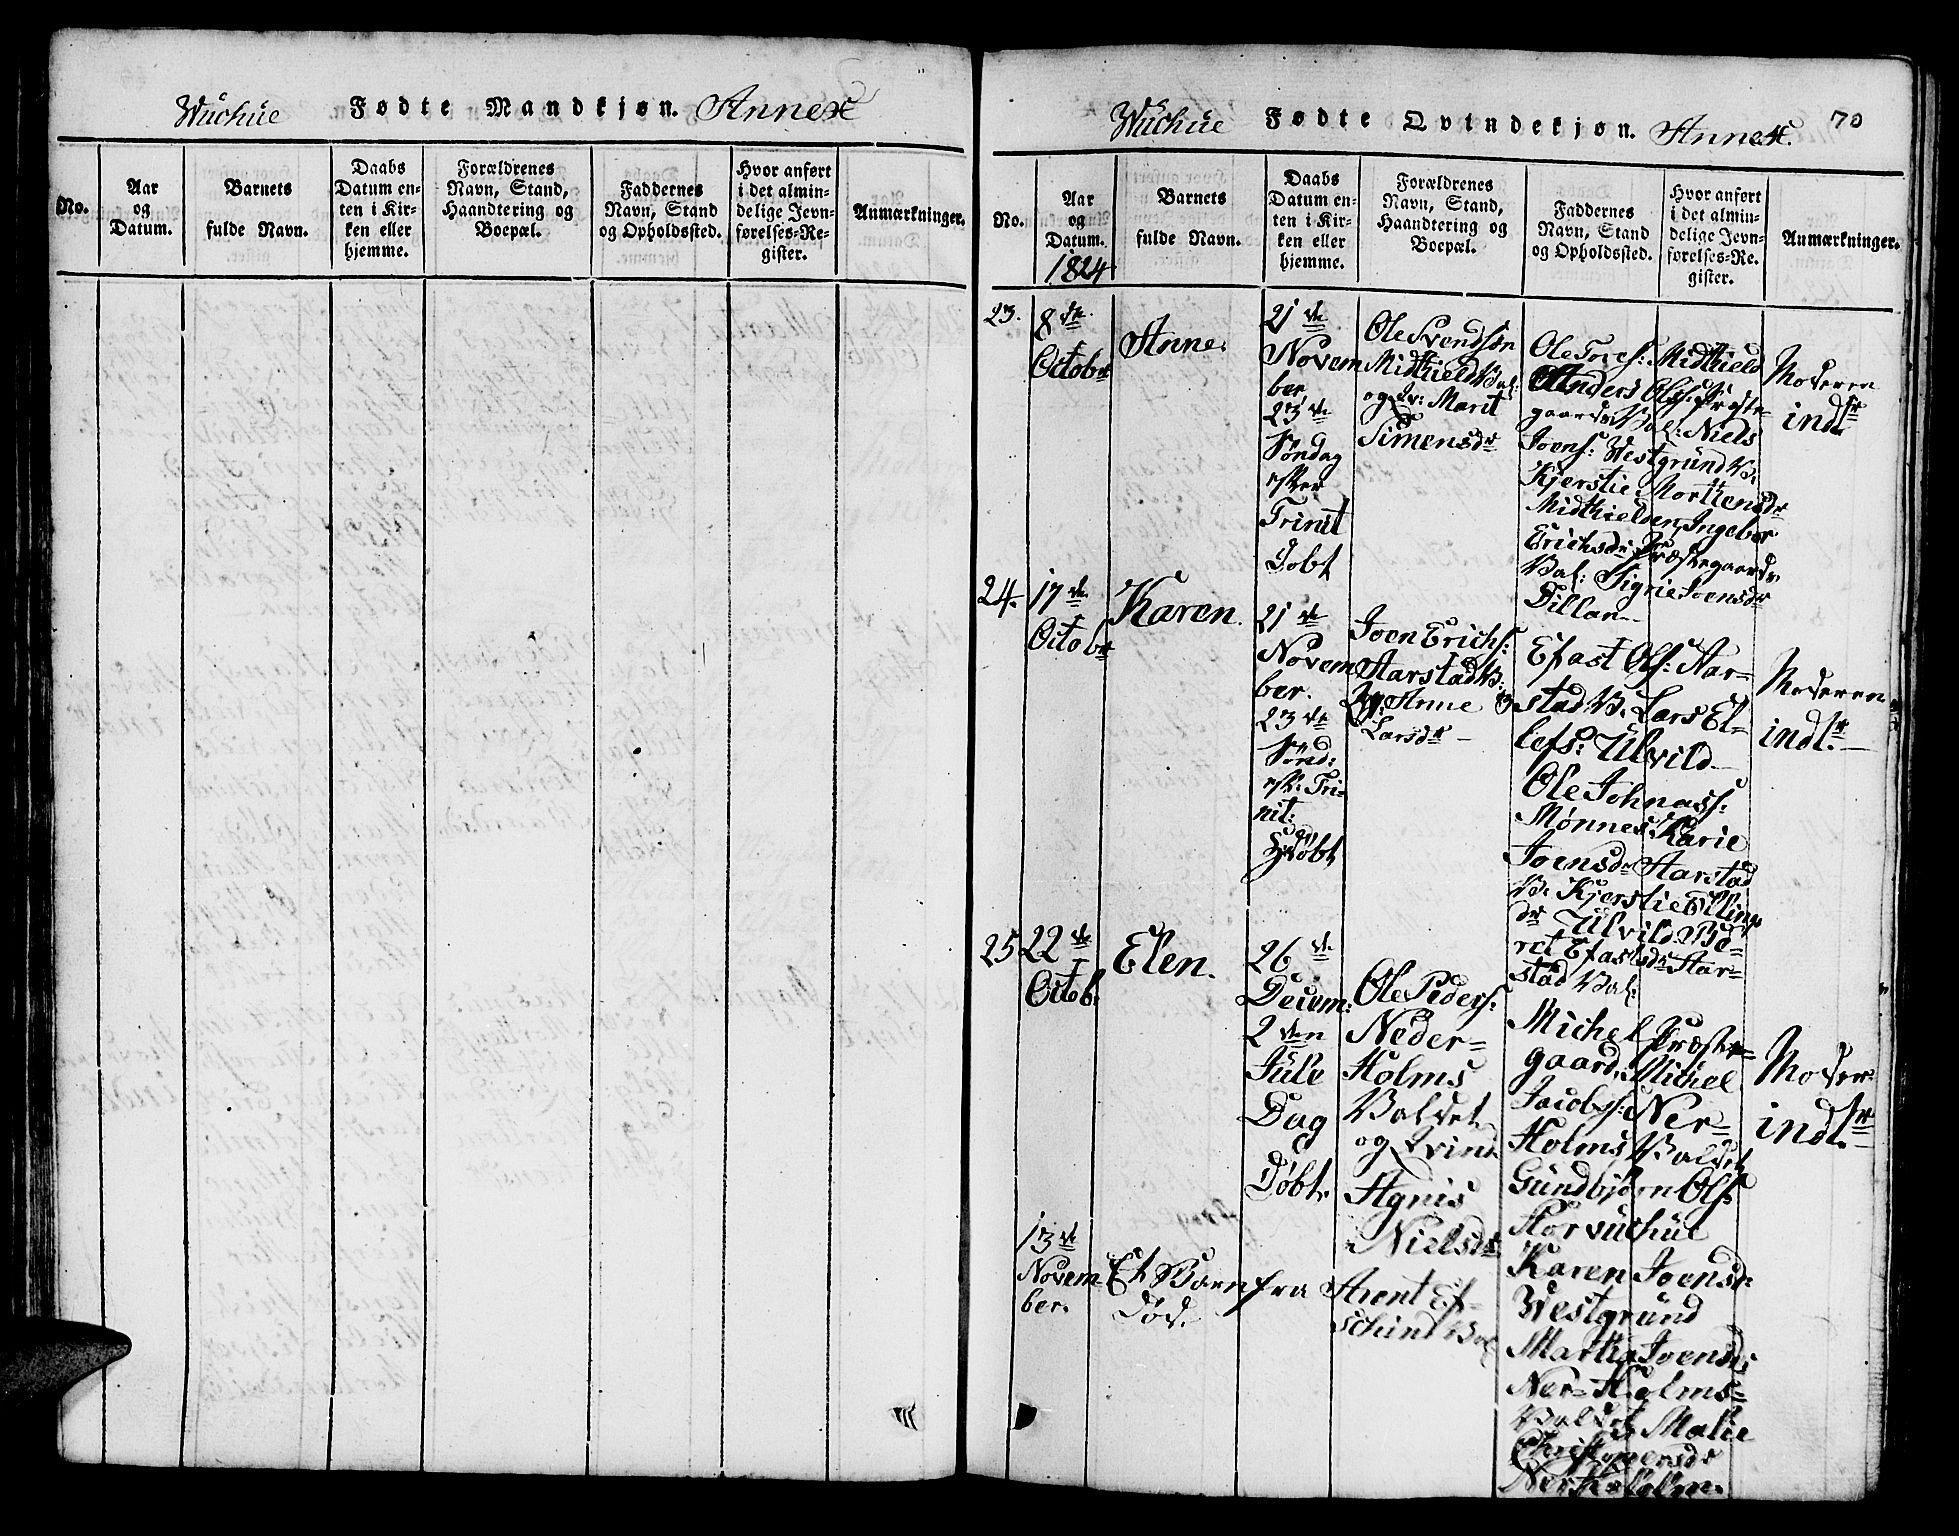 Wuchüe Fødte Mandkjøn. Annex
No.
Aar
og
Datum.
Barnets
fulde Navn.
Daabs
Datum en-
ten i Kir-
ken eller
hjemme.
Forældrenes
Navn, Stand,
Haandtering og
Boepæl.
Faddernes
Navn, Stand
og Opholdssted.
Hvor anført
i det almin-
delige Jevn-
førelses-Re-
gister.
Anmærkninger.
Wuchüe Fødte Qvindekjøn. Annex. 70
No.
Aar
og
Datum.
1824
Barnets
fulde Navn.
Daabs
Datum en-
ten i Kir-
ken eller
hjemme.
Forældrenes
Navn, Stand,
Haandtering og
Boepæl.
Faddernes
Navn, Stand
og Opholdssted.
Hvor anført
i det almin-
delige Jevn-
førelses-Re-
gister.
Anmærkninger.
23.
8de
Octobr
Anne.
21de
Novem
ber
23de
Søndag
efter
Trinit
Døbt
Ole Svendsøn
Midthield Val
og Qv: Marit
Simensdr
Ole Toresf: Midthield
Anders Olsf: Præste-
gaards Val: Niels
Joensf: Westgrund V:
Kjerstie Morttensdr
Midthielden, Ingebor
Erichsdr Præstegaards
Val: Sigrie Joensdr
Dillan
Moderen
indlr
24.
17de
Octobr
Karen.
21de
Novem
ber.
23de
Sønd:
eft: Tri-
nit:
Døbt
Joen Erichs:
Aarstad V:
Anne
Larsdr
Efast Ols: Aar-
stad V: Lars El-
lefs: Ulvild
Ole Johnass:
Mønnes: Karie
Joensdr Aarstad
V: Kjerstie Ellings
dr Ulvild: Be-
ret Efastsdr Aar-
stad Val:
Moderen
indlr
25
22de
Octob:
Elen.
26de
Decem:
2den
Jüle
Dag
Døbt.
Ole Peders:
Neder-
Holms
Valdet
og Qvind
Agnis
Nielsdr
Michel Præste-
gaard, Michel
Jacobs: Ner-
Holms Valdet
Gündbjørn Ols:
Storvuchüe
Karen Joensdr
Westgründ
Martha Joensdr
Ner-Holms-
Valdet Malie
Christophersdr
Ner-Holm.
Moder:
indlr
13de
Novem
ber.
Et Barn fra
død.
Arent Ef-
schind Val